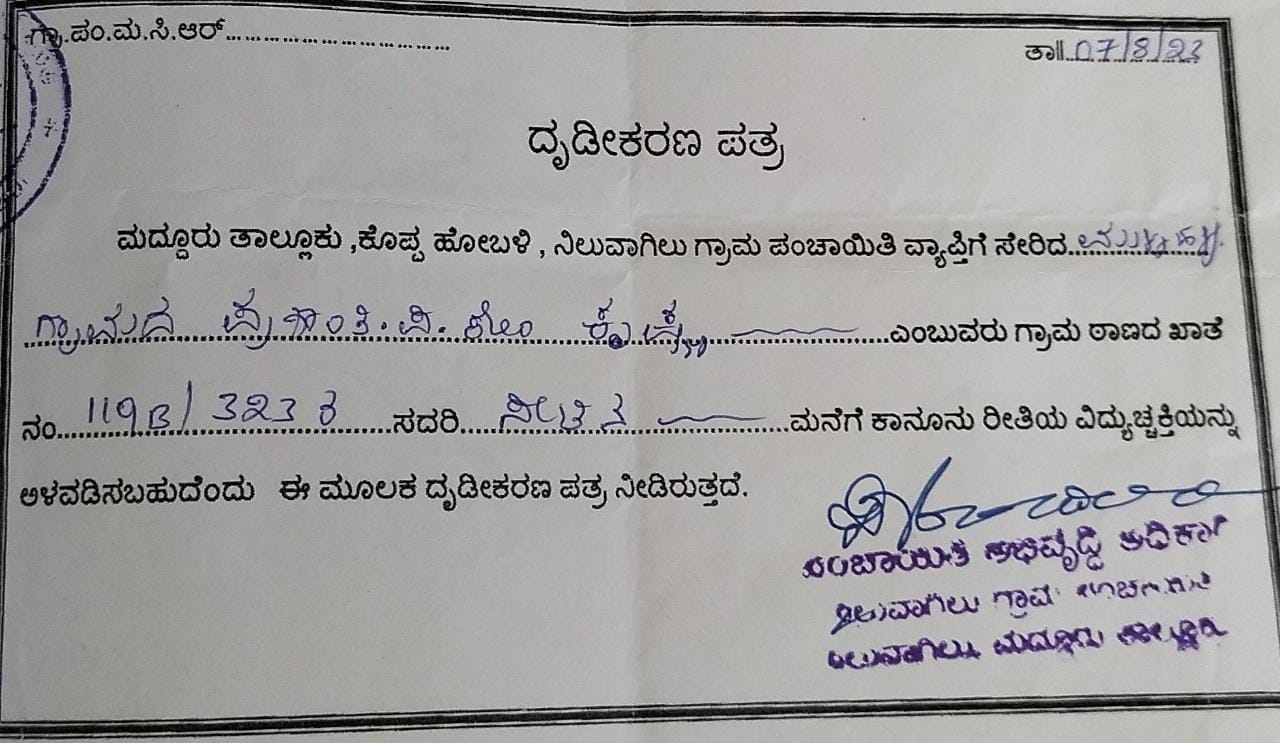 ಗ್ರಾ.ಪಂ.ಮ.ಸಿ.ಆರ್..............................
ತಾ॥..07/8/23
ದೃಡೀಕರಣ ಪತ್ರ
ಮದ್ದೂರು ತಾಲ್ಲೂಕು ,ಕೊಪ್ಪ ಹೋಬಳಿ , ನಿಲುವಾಗಿಲು ಗ್ರಾಮ ಪಂಚಾಯಿತಿ ವ್ಯಾಪ್ತಿಗೆ ಸೇರಿದ..
ಗ್ರಾಮದ ಪ್ರಶಾಂತಿ.ವಿ. ಕೋಂ ಕೃಷ್ಣ ಎಂಬುವರು ಗ್ರಾಮ ಠಾಣದ ಖಾತೆ
ನಂ... ಸದರಿ... ಮನೆಗೆ ಕಾನೂನು ರೀತಿಯ ವಿದ್ಯುಚ್ಚಕ್ತಿಯನ್ನು
ಅಳವಡಿಸಬಹುದೆಂದು ಈ ಮೂಲಕ ದೃಡೀಕರಣ ಪತ್ರ ನೀಡಿರುತ್ತದೆ.
ಪಂಚಾಯಿತಿ ಅಭಿವೃದ್ಧಿ ಅಧಿಕಾರಿ
ನಿಲುವಾಗಿಲು ಗ್ರಾಮ ಪಂಚಾಯಿತಿ
ನಿಲುವಾಗಿಲು, ಮದ್ದೂರು ತಾಲ್ಲೂಕು